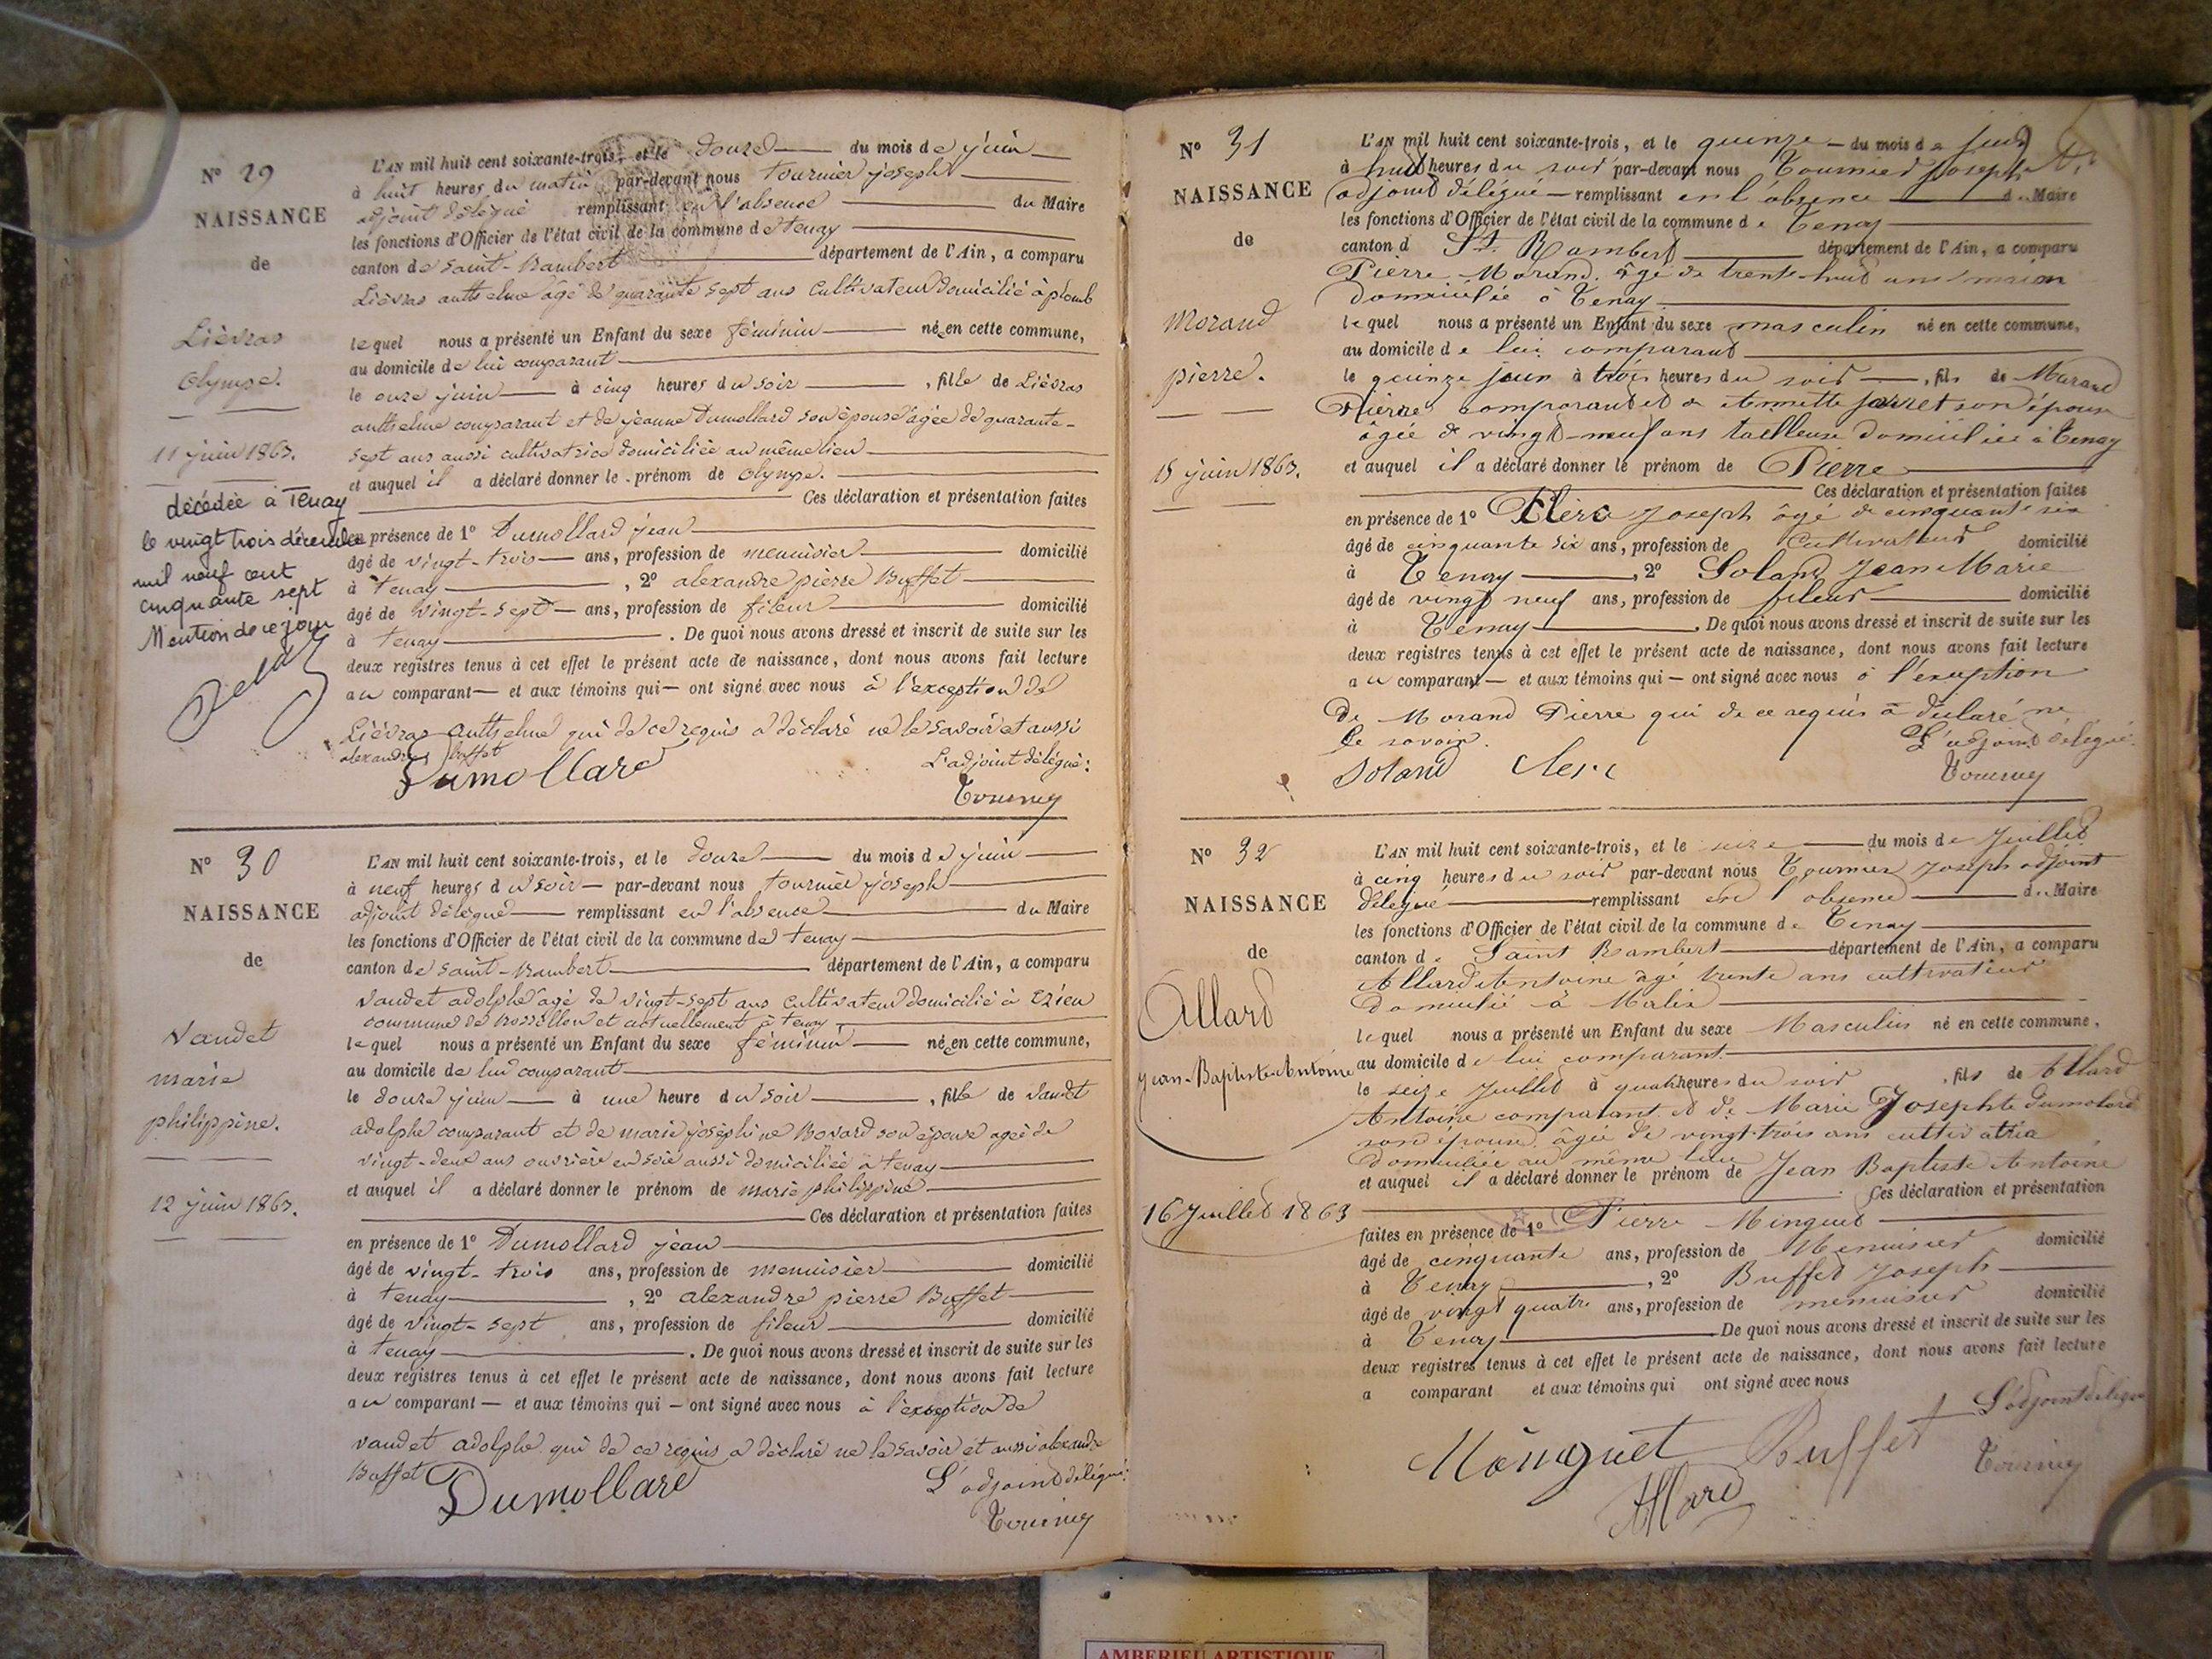 N° 29
NAISSANCE
de
Lièvras
Olympe.
11 juin 1863.
décédée à Tenay
le vingt trois décembre
mil neuf cent
cinquante sept
Mention de ce jour
L'AN mil huit cent soixante-trois, et le douze du mois de juin
à huit heures du matin par-devant nous tournier joseph
adjoint délégué remplissant en l'absence du Maire
les fonctions d'Officier de l'état civil de la commune de tenay
canton de saint-Rambert département de l'Ain, a comparu
Lièvras anthelme âgé de quarante sept ans cultivateur domicilié à plomb
lequel nous a présenté un Enfant du sexe féminin né en cette commune,
au domicile de lui comparant
le onze juin à cinq heures du soir, fille de Lièvras
anthelme comparant et de jeanne Dumollard son épouse âgée de quarante-
sept ans aussi cultivatrice domiciliée au même lieu
et auquel il a déclaré donner le prénom de Olympe.
Ces déclaration et présentation faites
en présence de 1° Dumollard jean
âgé de vingt-trois ans, profession de menuisier domicilié
à tenay, 2° alexandre pierre Buffet
âgé de vingt-sept ans, profession de fileur domicilié
à tenay. De quoi nous avons dressé et inscrit de suite sur les
deux registres tenus à cet effet le présent acte de naissance, dont nous avons fait lecture
au comparant et aux témoins qui ont signé avec nous à l'exception de
Lièvras anthelme qui de ce requis a déclaré ne le savoir et aussi
alexandre buffet
L'adjoint délégué:
Dumollard
N° 30
NAISSANCE
de
Vaudet
marie
philippine.
12 juin 1863.
L'AN mil huit cent soixante-trois, et le douze du mois de juin
à neuf heures du soir par-devant nous tournier joseph
adjoint délégué remplissant en l'absence du Maire
les fonctions d'Officier de l'état civil de la commune de tenay
canton de saint-Rambert département de l'Ain, a comparu
Vaudet adolphe âgé de vingt-sept ans cultivateur domicilié à Izieu
commune de Rossillon et actuellement à tenay
lequel nous a présenté un Enfant du sexe féminin né en cette commune,
au domicile de lui comparant
le douze juin à une heure du soir, fille de Vaudet
adolphe comparant et de marie joséphine Bovard son épouse agée de
vingt-deux ans ouvrière en soie aussi domiciliée à tenay
et auquel il a déclaré donner le prénom de marie philippine
Ces déclaration et présentation faites
en présence de 1° Dumollard jean
âgé de vingt-trois ans, profession de menuisier domicilié
à tenay, 2° alexandre pierre Buffet
âgé de vingt-sept ans, profession de fileur domicilié
à tenay. De quoi nous avons dressé et inscrit de suite sur les
deux registres tenus à cet effet le présent acte de naissance, dont nous avons fait lecture
au comparant et aux témoins qui ont signé avec nous à l'exception de
vaudet adolphe qui de ce requis a déclaré ne le savoir et aussi alexandre
Buffet
L'adjoint délégué:
Dumollard
N° 31
NAISSANCE
de
Morand
pierre.
15 juin 1863.
L'AN mil huit cent soixante-trois, et le quinze du mois de juin
à huit heures du soir par-devant nous Tournier Joseph
adjoint délégué remplissant en l'absence du Maire
les fonctions d'Officier de l'état civil de la commune de Tenay
canton d St. Rambert département de l'Ain, a comparu
Pierre Morand âgé de trente-huit ans maçon
domicilié à Tenay
lequel nous a présenté un Enfant du sexe masculin né en cette commune,
au domicile de lui comparant
le quinze juin à trois heures du soir, fils de Morand
Pierre comparant et de Annette Jarret son épouse
âgée de vingt-neuf ans tailleuse domiciliée à Tenay
et auquel il a déclaré donner le prénom de Pierre
Ces déclaration et présentation faites
en présence de 1° Clerc Joseph âgé de cinquante six
âgé de cinquante six ans, profession de Cultivateur domicilié
à Tenay, 2° Soland Jean Marie
âgé de vingt neuf ans, profession de fileur domicilié
à Tenay. De quoi nous avons dressé et inscrit de suite sur les
deux registres tenus à cet effet le présent acte de naissance, dont nous avons fait lecture
au comparant et aux témoins qui ont signé avec nous à l'exeption
de Morand Pierre qui de ce requis à déclaré ne
le savoir.
L'adjoint délégué.
Soland Clerc
N° 32
NAISSANCE
de
Allard
Jean-Baptiste Antoine
16 Juillet 1863
L'AN mil huit cent soixante-trois, et le seize du mois de Juillet
à cinq heures du soir par-devant nous Tournier Joseph adjoint
délégué remplissant en l'absence du Maire
les fonctions d'Officier de l'état civil de la commune de Tenay
canton de Saint Rambert département de l'Ain, a comparu
Allard Antoine âgé trente ans cultivateur
domicilié à
lequel nous a présenté un Enfant du sexe Masculin né en cette commune,
au domicile de lui comparant
le seize Juillet à quatre heures du soir, fils de Allard
Antoine comparant et de Marie Josephte Dumolard
son épouse âgée de vingt-trois ans cultivatrice
domiciliée au même lieu
et auquel il a déclaré donner le prénom de Jean Baptiste Antoine
Ces déclaration et présentation
faites en présence de 1° Pierre Minguet
âgé de cinquante ans, profession de Menuisier domicilié
à Tenay, 2° Buffet Joseph
âgé de vingt quatre ans, profession de menuisier domicilié
à Tenay. De quoi nous avons dressé et inscrit de suite sur les
deux registres tenus à cet effet le présent acte de naissance, dont nous avons fait lecture
a comparant et aux témoins qui ont signé avec nous
L'adjoint délégué
Buffet
Allard
AMBERIEU ARTISTIQUE